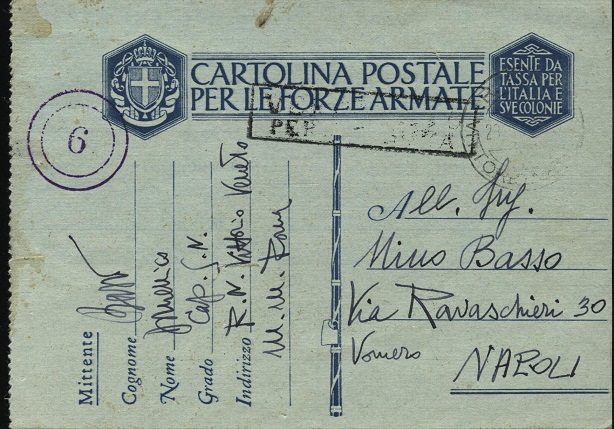 CARTOLINA POSTALE
PER LE FORZE ARMATE
ESENTE DA
TASSA PER
L'ITALIA E
SVE COLONIE
6
PER
All. Ing.
Mino Basso
Via Ravaschieri 30
Vomero
NAPOLI
Mittente
Cognome Basso
Nome
Grado Cap. G.N.
Indirizzo R.N. Vittorio Veneto
M.M. Roma